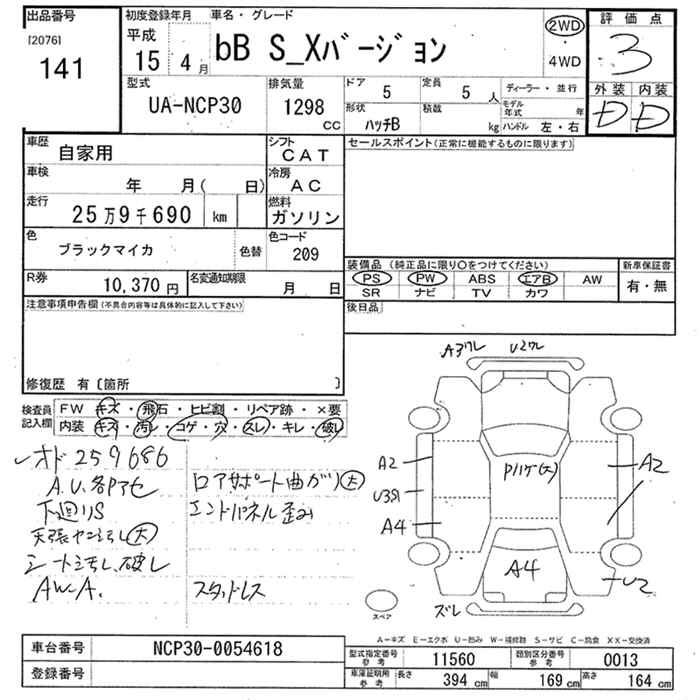 出品番号
[2076]
141
初度登録年月
平成
15年4月
車名・グレード
bB S_Xバージョン
2WD
・
4WD
評価点
3
外装 内装
D D
型式
UA-NCP30
排気量
1298
CC
ドア
5
定員
5 人
ディーラー・並行
形状
ハッチB
積載
kg
モデル年式 年
ハンドル 左・右
車歴
自家用
シフト
CAT
セールスポイント(正常に機能するものに限ります)
車検
年 月( 日)
冷房
AC
走行
25万9千690 km
燃料
ガソリン
色
ブラックマイカ
色替
色コード
209
R券
10,370 円
名変通知期限
月 日
装備品 (純正品に限り○をつけてください)
新車保証書
PS PW ABS エアB AW
SR ナビ TV カワ
有・無
注意事項申告欄(不具合内容等は具体的に記入して下さい)
後日品
修復歴 有〔箇所 〕
検査員
記入欄
FW キズ・飛石・ヒビ割・リペア跡・×要
内装・キズ・汚レ・コゲ・穴・スレ・キレ・破レ
オド259686
A.U.各Pアセ
下廻りS
天張ヤニ汚し(大)
シート汚し、破し
AW-A.
ロアサポート曲がり(大)
エンドパネル歪み
スタッドレス
A3ワレ
U2ワレ
A2
U3S1
A4
Pハゲ(大)
A2
A4
U2
ズレ
スペア
A-キズ E-エクボ U-凹み W-補修跡 S-サビ C-腐食 XX-交換済
車台番号
NCP30-0054618
登録番号
型式指定番号
参考
11560
類別区分番号
参考
0013
車庫証明用
参考
長さ
394 cm
幅
169 cm
高さ
164 cm